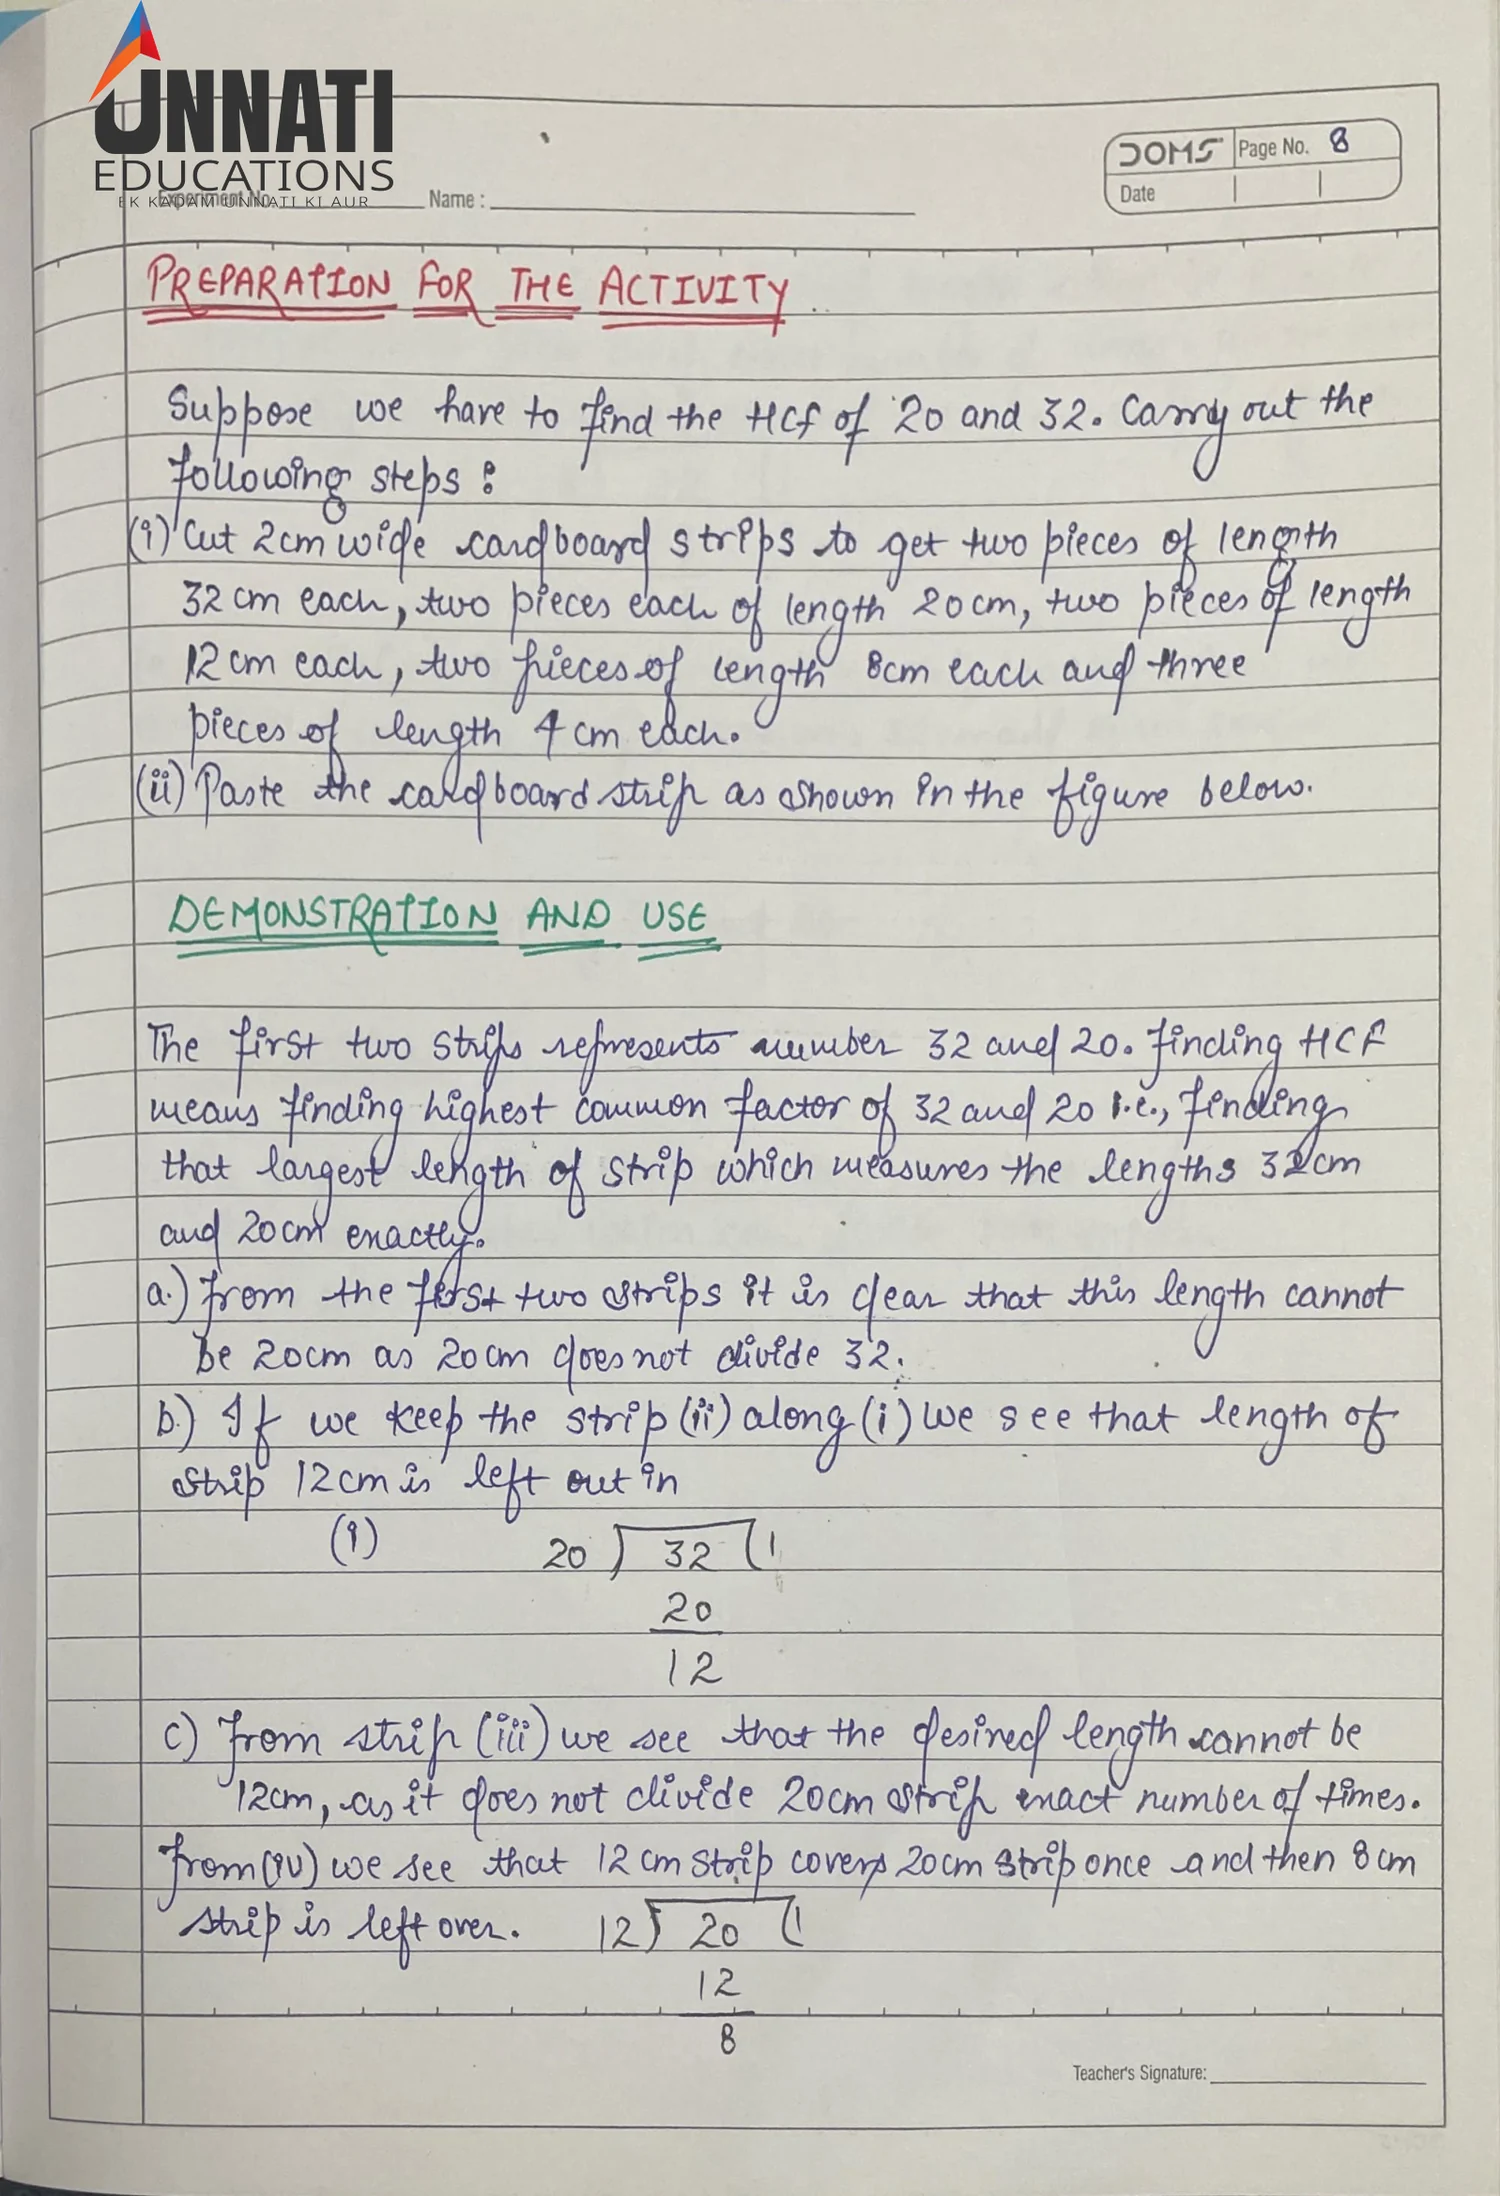 UNNATI
EDUCATIONS
EK KADAM UNNATI KI AUR
Experiment No. Name :
DOMS Page No. 8
Date
PREPARATION FOR THE ACTIVITY
Suppose we have to find the HCf of 20 and 32. Carry out the
following steps :
(i) Cut 2cm wide cardboard strips to get two pieces of length
32 cm each, two pieces each of length 20cm, two pieces of length
12 cm each, two pieces of length 8cm each and three
pieces of length 4 cm each.
(ii) Paste the cardboard strip as shown in the figure below.
DEMONSTRATION AND USE
The first two strips represents number 32 and 20. finding HCF
means finding highest common factor of 32 and 20 i.e., finding
that largest length of strip which measures the lengths 32cm
and 20cm exactly.
a.) from the first two strips it is clear that this length cannot
be 20cm as 20cm does not divide 32.
b.) If we keep the strip (ii) along (i) we see that length of
strip 12cm is left out in
(i) 20 ) 32 ( 1
20
12
c) from strip (iii) we see that the desired length cannot be
12cm, as it does not divide 20cm strip exact number of times.
from (iv) we see that 12 cm strip covers 20cm strip once and then 8 cm
strip is left over. 12 ) 20 ( 1
12
8
Teacher's Signature: